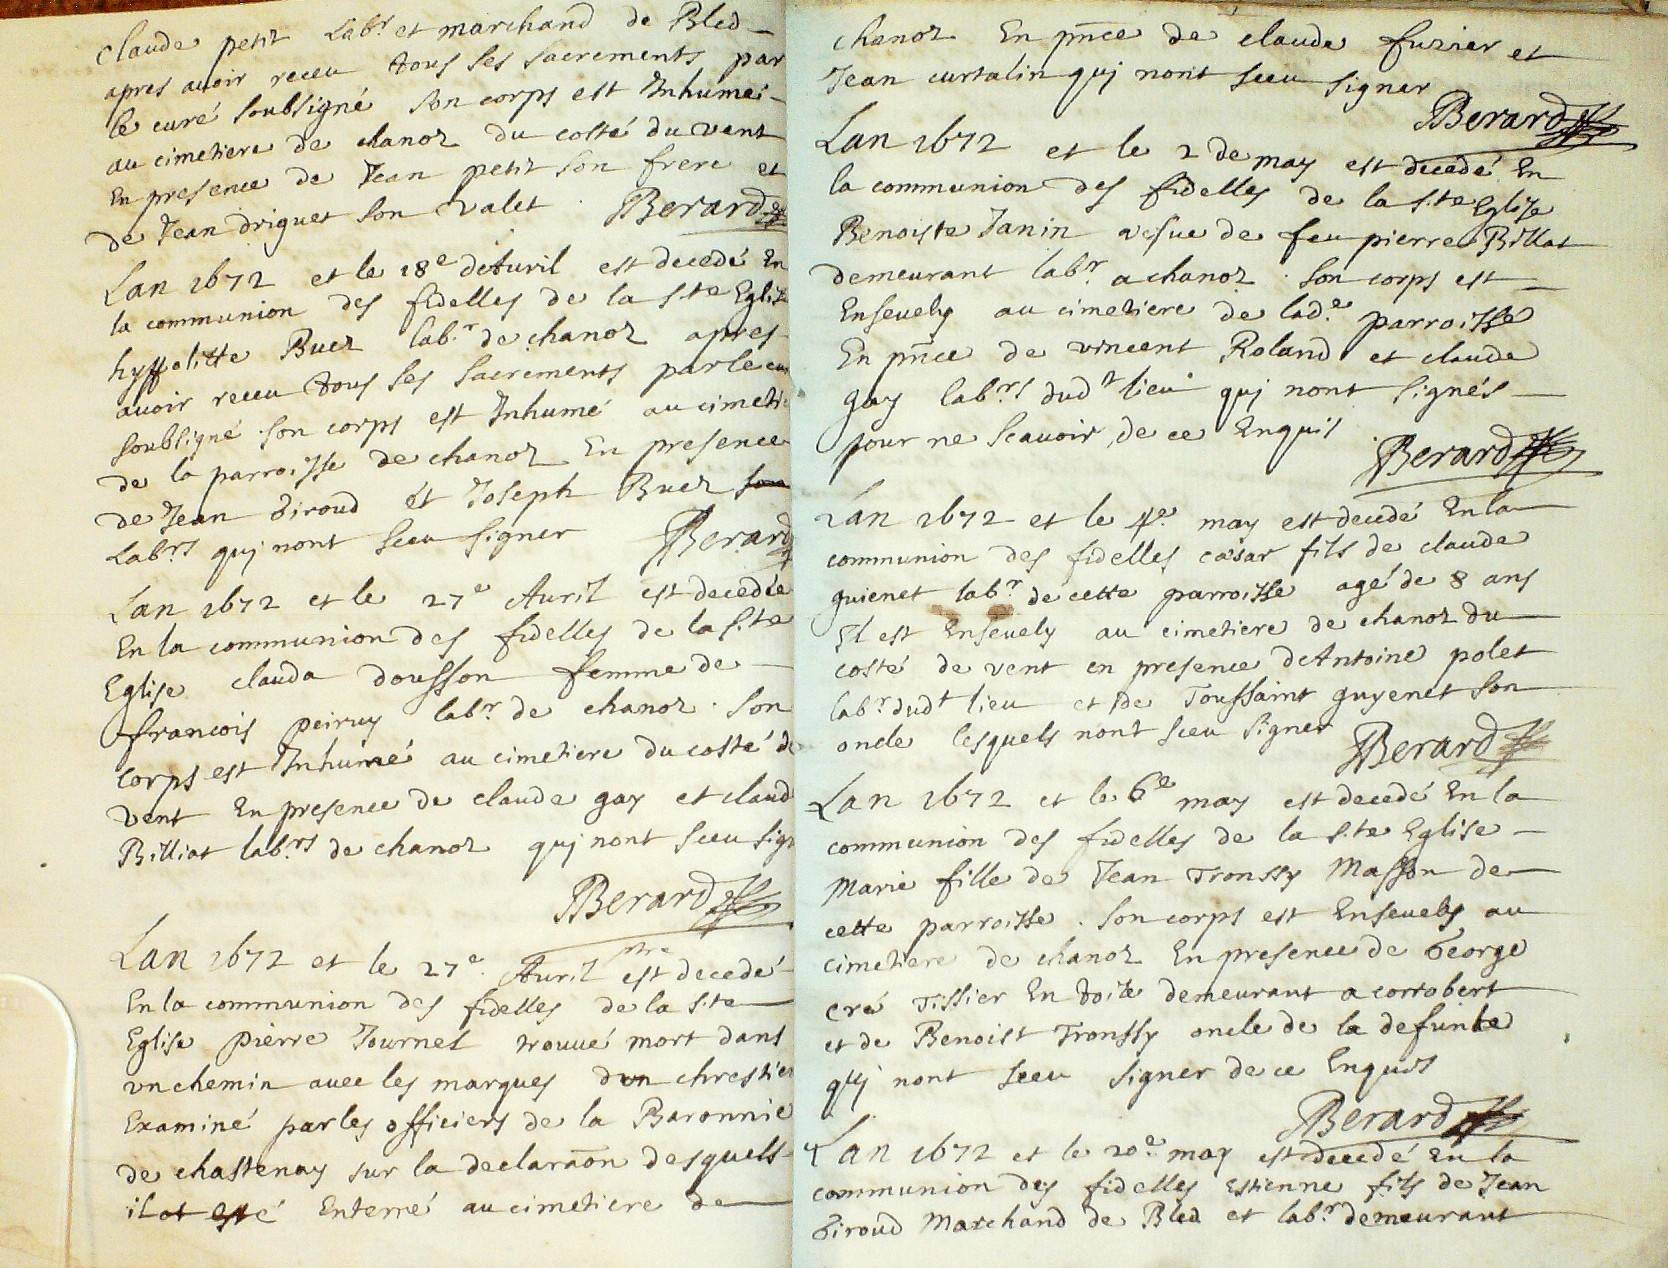 Claude petit Lab.r et marchand de Bled
apres auoir receu tous ses sacrements par
le curé soubsigné son corps est Inhumé
au cimetiere de chanoz du costé du vent
En presence de Jean petit son frere et
de Jean driguet son valet . Berard
Lan 1672 et le 18e dAuril est decedé En
la communion des fidelles de la s.te Eglise
hyppolitte Buez lab.r de chanoz apres
auoir receu tous ses sacrements par le cur
soubsigné son corps est Inhumé au cimeti
de la parroisse de chanoz En presence
de Jean Giroud et Joseph Buez
Lab.rs quj nont sceu signer Berard
Lan 1672 et le 27e Auril est decedée
En la communion des fidelles de la s.te
Eglise clauda dousson femme de
francois peiruy lab.r de chanoz . son
corps est Inhumé au cimetiere du costé de
vent En presence de claude gay et claud
Billiat lab.rs de chanoz quj nont sceu sign
Berard
Lan 1672 et le 27e Auril est decedé
En la communion des fidelles de la s.te
Eglise pierre Tournel trouué mort dans
vn chemin auec les marques dun chrestien
Examiné par les officiers de la Baronnie
de chastenay sur la declaraōn desquels
il at esté Enterré au cimetiere de
chanoz En pn̄ce de claude fuzier et
Jean curtalin quj nont sceu signer
Berard
Lan 1672 et le 2 de may est decedé En
la communion des fidelles de la s.te Eglise
Benoiste Janin vefue de feu pierre Billat
demeurant lab.r a chanoz . son corps est
Enseuely au cimetiere de lad.e parroisse
En pn̄ce de vincent Roland et claude
gay lab.rs dud.t lieu quj nont signés
pour ne scauoir de ce Enquis
Berard
Lan 1672 et le 4e may est decedé En la
communion des fidelles cæsar fils de claude
guienet lab.r de cette parroisse agé de 8 ans
Il est Enseuely au cimetiere de chanoz du
costé de vent en presence dAntoine polet
lab.r dud.t lieu et de Toussaint guyenet son
oncle lesquels nont sceu signer Berard
Lan 1672 et le 6e may est decedé En la
communion des fidelles de la s.te Eglise
Marie fille de Jean Tronssy Masson de
cette parroisse . son corps est Enseuely au
cimetiere de chanoz En presence de George
cré Tissier En toile demeurant a corrobert
et de Benoist Tronssy oncle de la defunte
quj nont sceu signer de ce Enquis
Berard
Lan 1672 et le 20e may est decedé En la
communion des fidelles Estienne fils de Jean
Giroud Marchand de Bled et lab.r demeurant